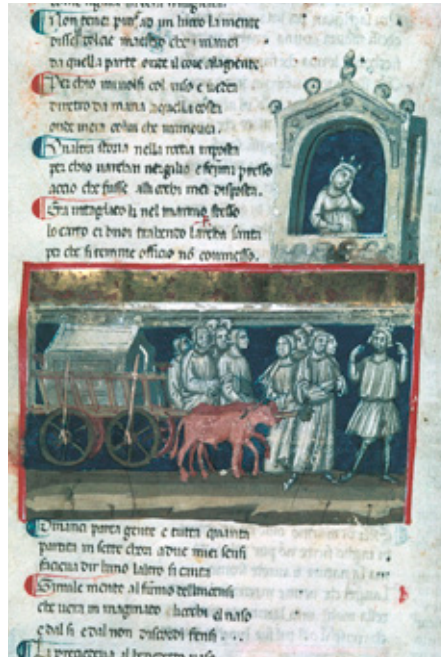 Non tener pur ad un luoco la mente
disse l dolce maestro che
da quella parte onde il core ala gente
Per chio mi mossi col uiso e uedea
diretro da maria da quella costa
onde mera colui che mi mouea.
Unaltra storia nella roccia imposta
per chio uarchai uergilio e femi presso
accio che fusse alli occhi miei disposta.
Era intagliato li nel marmo stesso
lo carro ei buoi trahendo larcha santa
per che si teme officio nō commesso.
Dinanci parea gente e tutta quanta
partita in sette chori a due miei sensi
faceua dir luno laltro si canta
Simile mente al fumo delincensi
che uera imaginato el naso
e dal si e dal non discordi fensi
Li precedeua al benedetto uaso